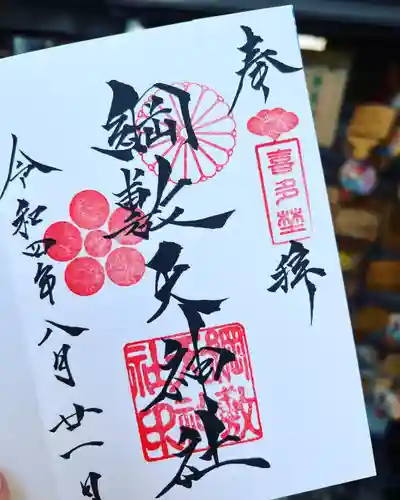 奉拝
喜多埜
綱敷天神社
綱敷天神社印
令和四年八月廿一日